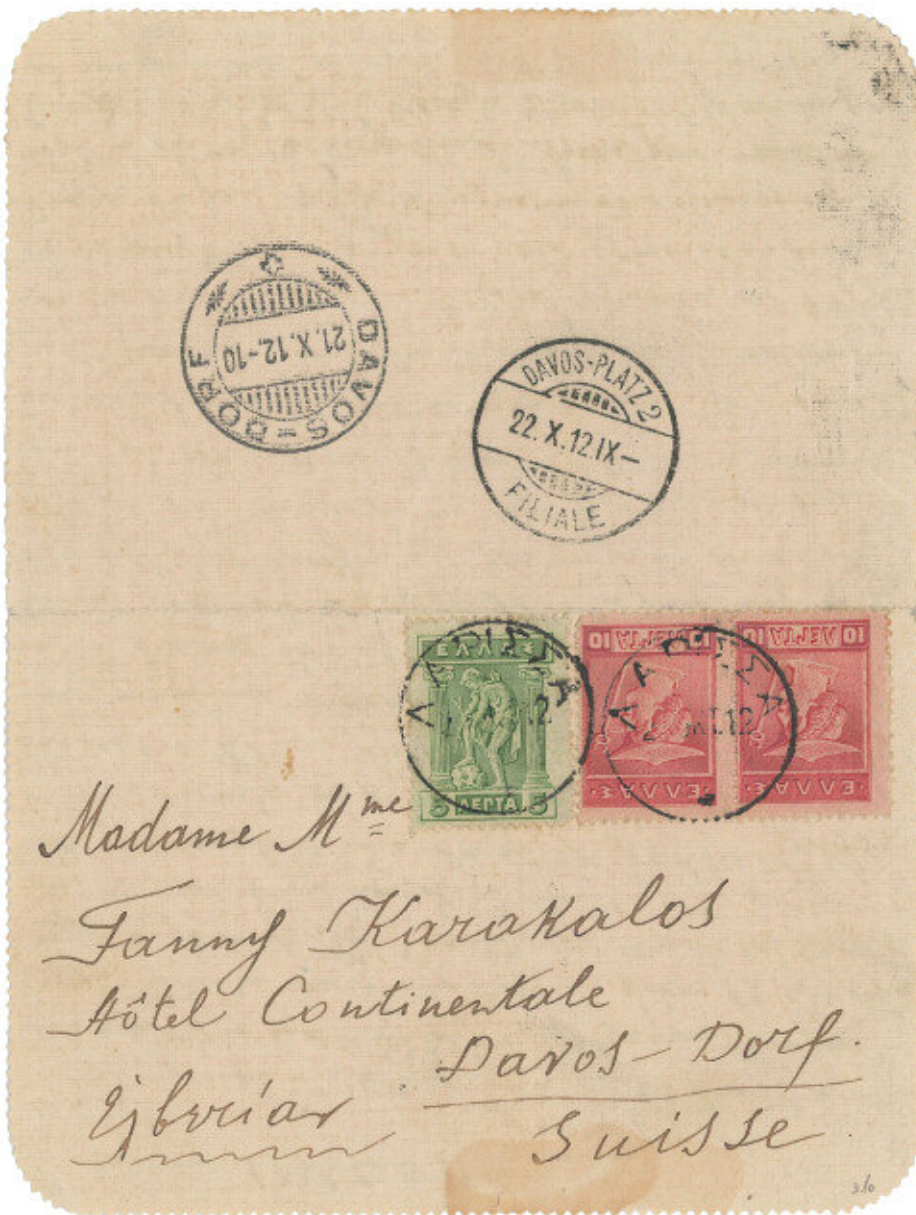 DAVOS-DORF
21.X.12.-10
DAVOS-PLATZ 2
22.X.12.IX–
FILIALE
ΕΛΛΑΣ
5 ΛΕΠΤΑ 5
10 ΛΕΠΤΑ 10
ΕΛΛΑΣ
10 ΛΕΠΤΑ 10
ΕΛΛΑΣ
ΛΑΡΙΣΣΑ
ΛΑΡΙΣΣΑ
Madame Mme
Fanny Karakalos
Hôtel Continentale
Davos-Dorf.
Ἑλβετίαν
Suisse